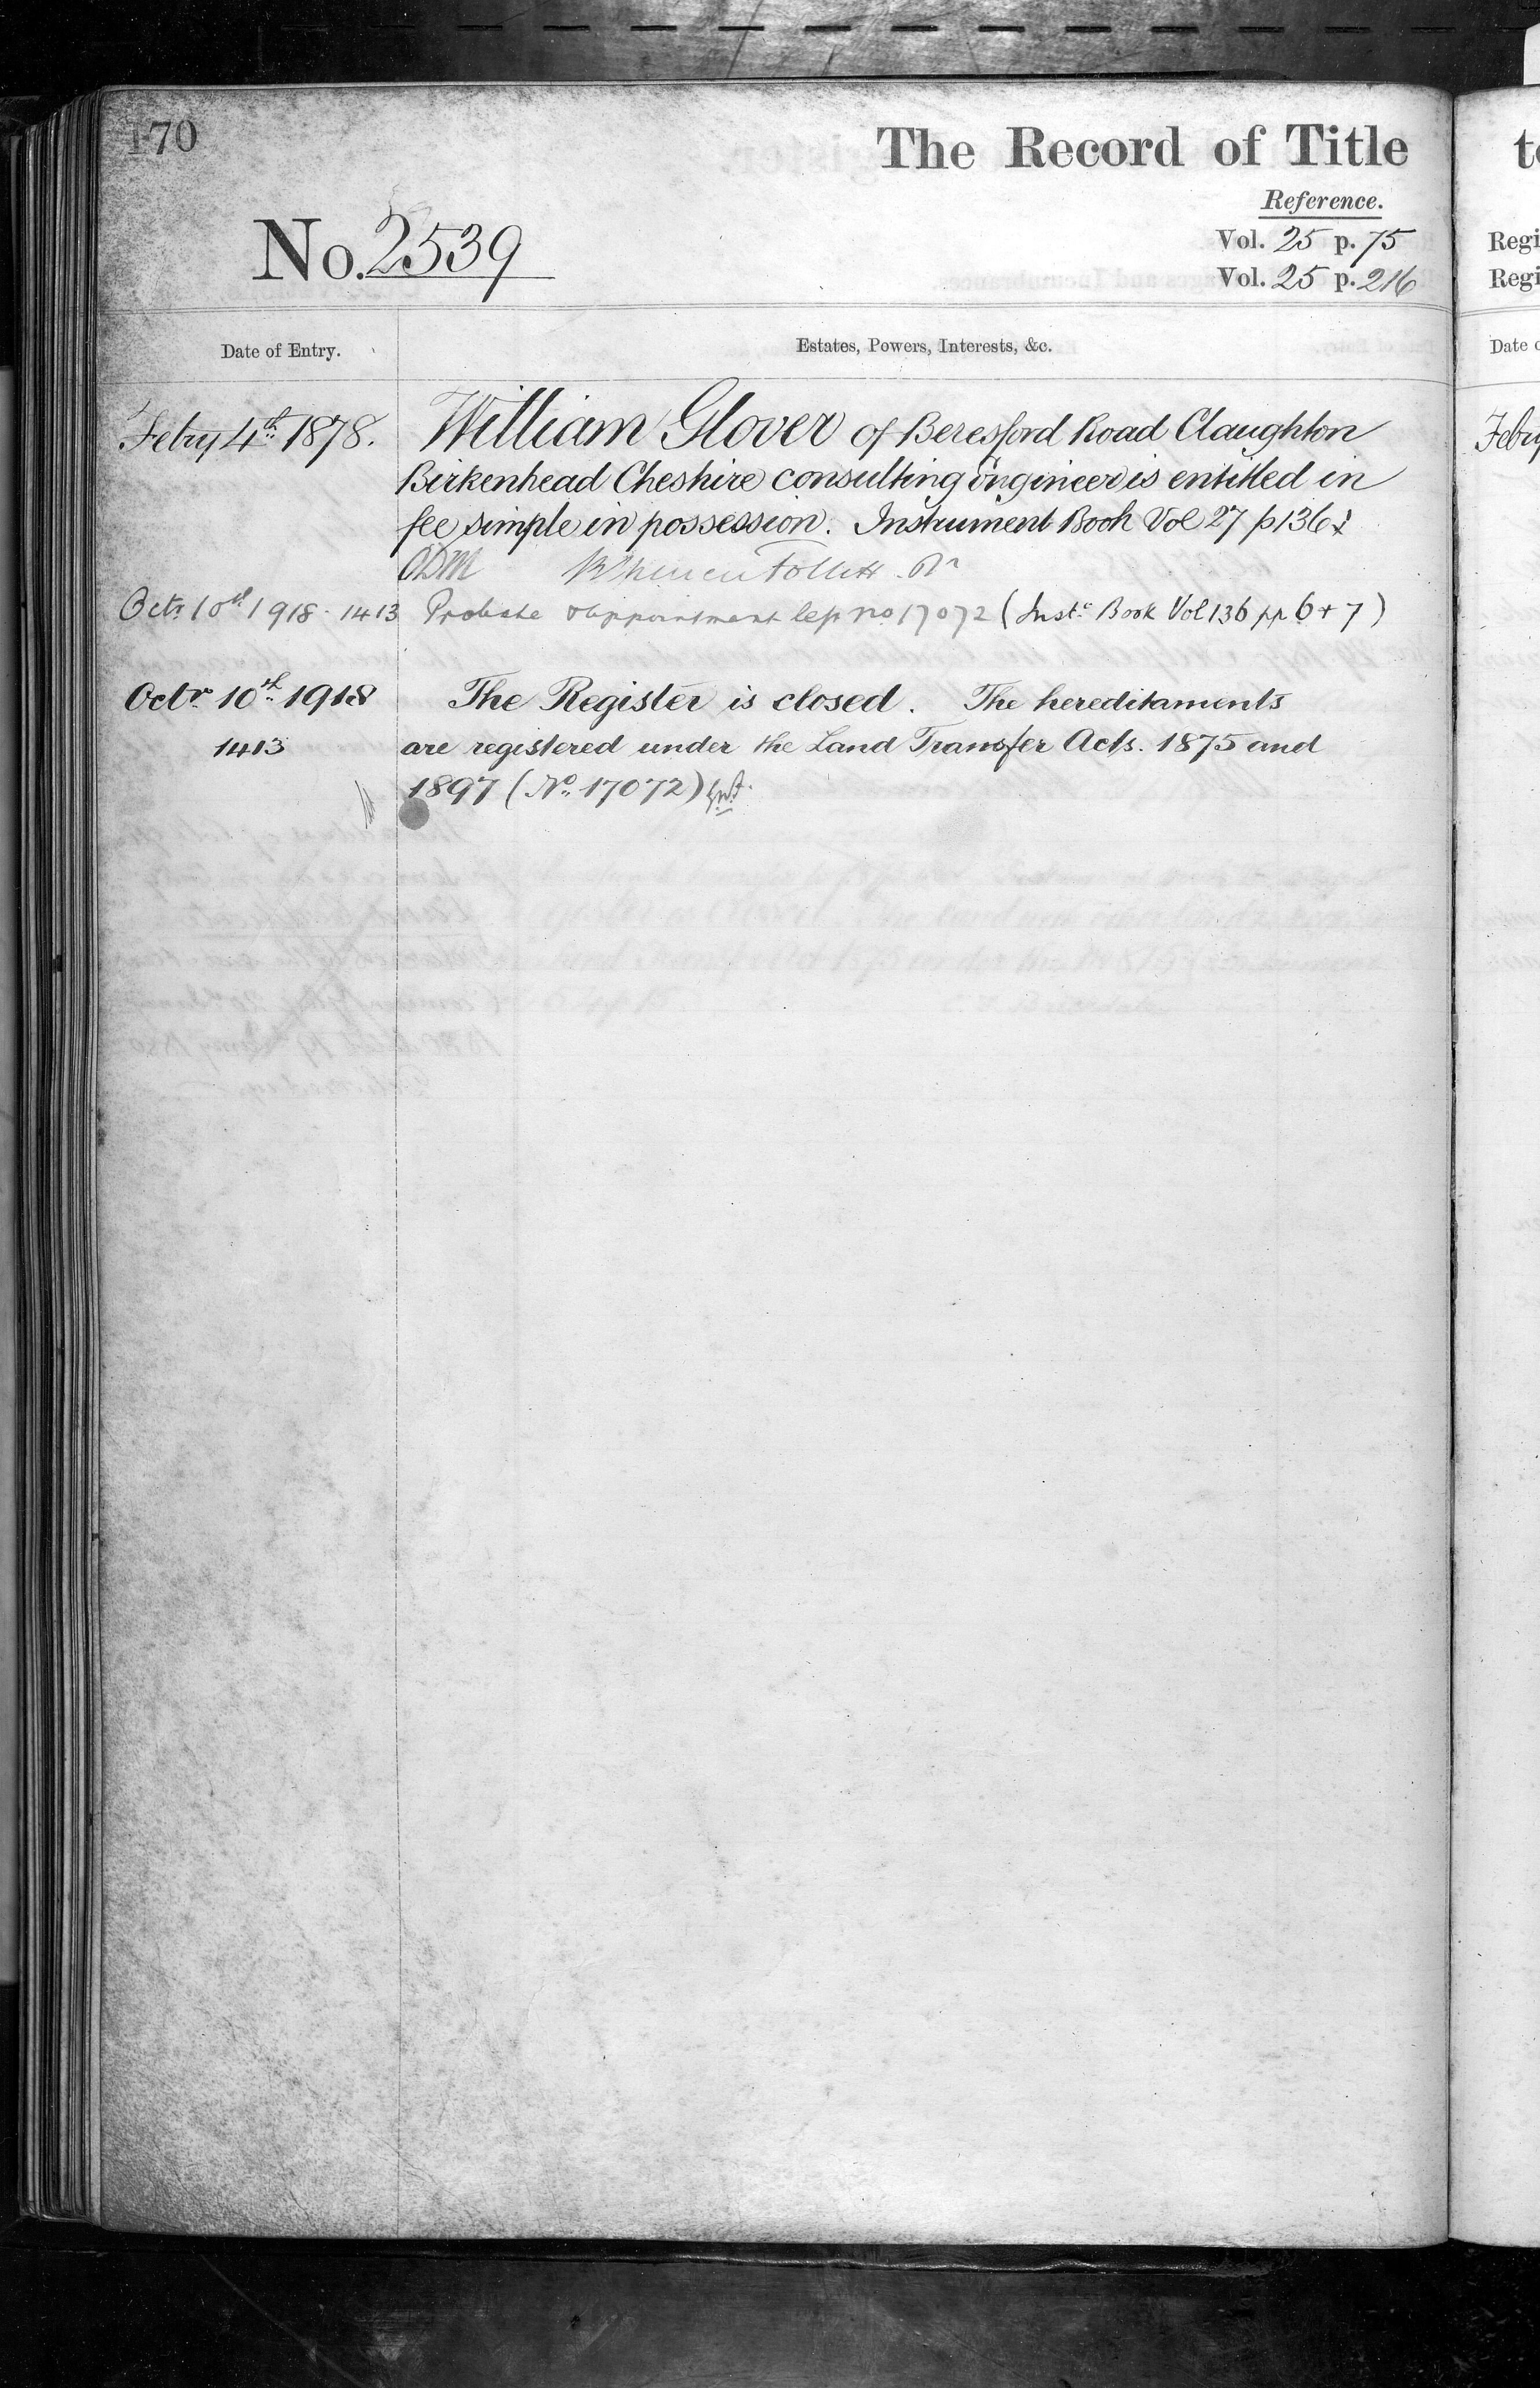 170
The Record of Title
Reference.
No. 2539
Vol. 25 p. 75
Vol. 25 p. 216
Date of Entry.
Estates, Powers, Interests, &c.
Febry 4th 1878.
William Glover of Beresford Road Claughton
Birkenhead Cheshire consulting Engineer is entitled in
fee simple in possession. Instrument Book Vol 27 p 136
Follett
Octr 10th 1918 - 1413
Probate & appointment no 17072 (Inst. Book Vol 136 pp 6 + 7)
Octr 10th 1918
The Register is closed. The hereditaments
1413
are registered under the Land Transfer Acts. 1875 and
1897 (No. 17072)
Regi
Regi